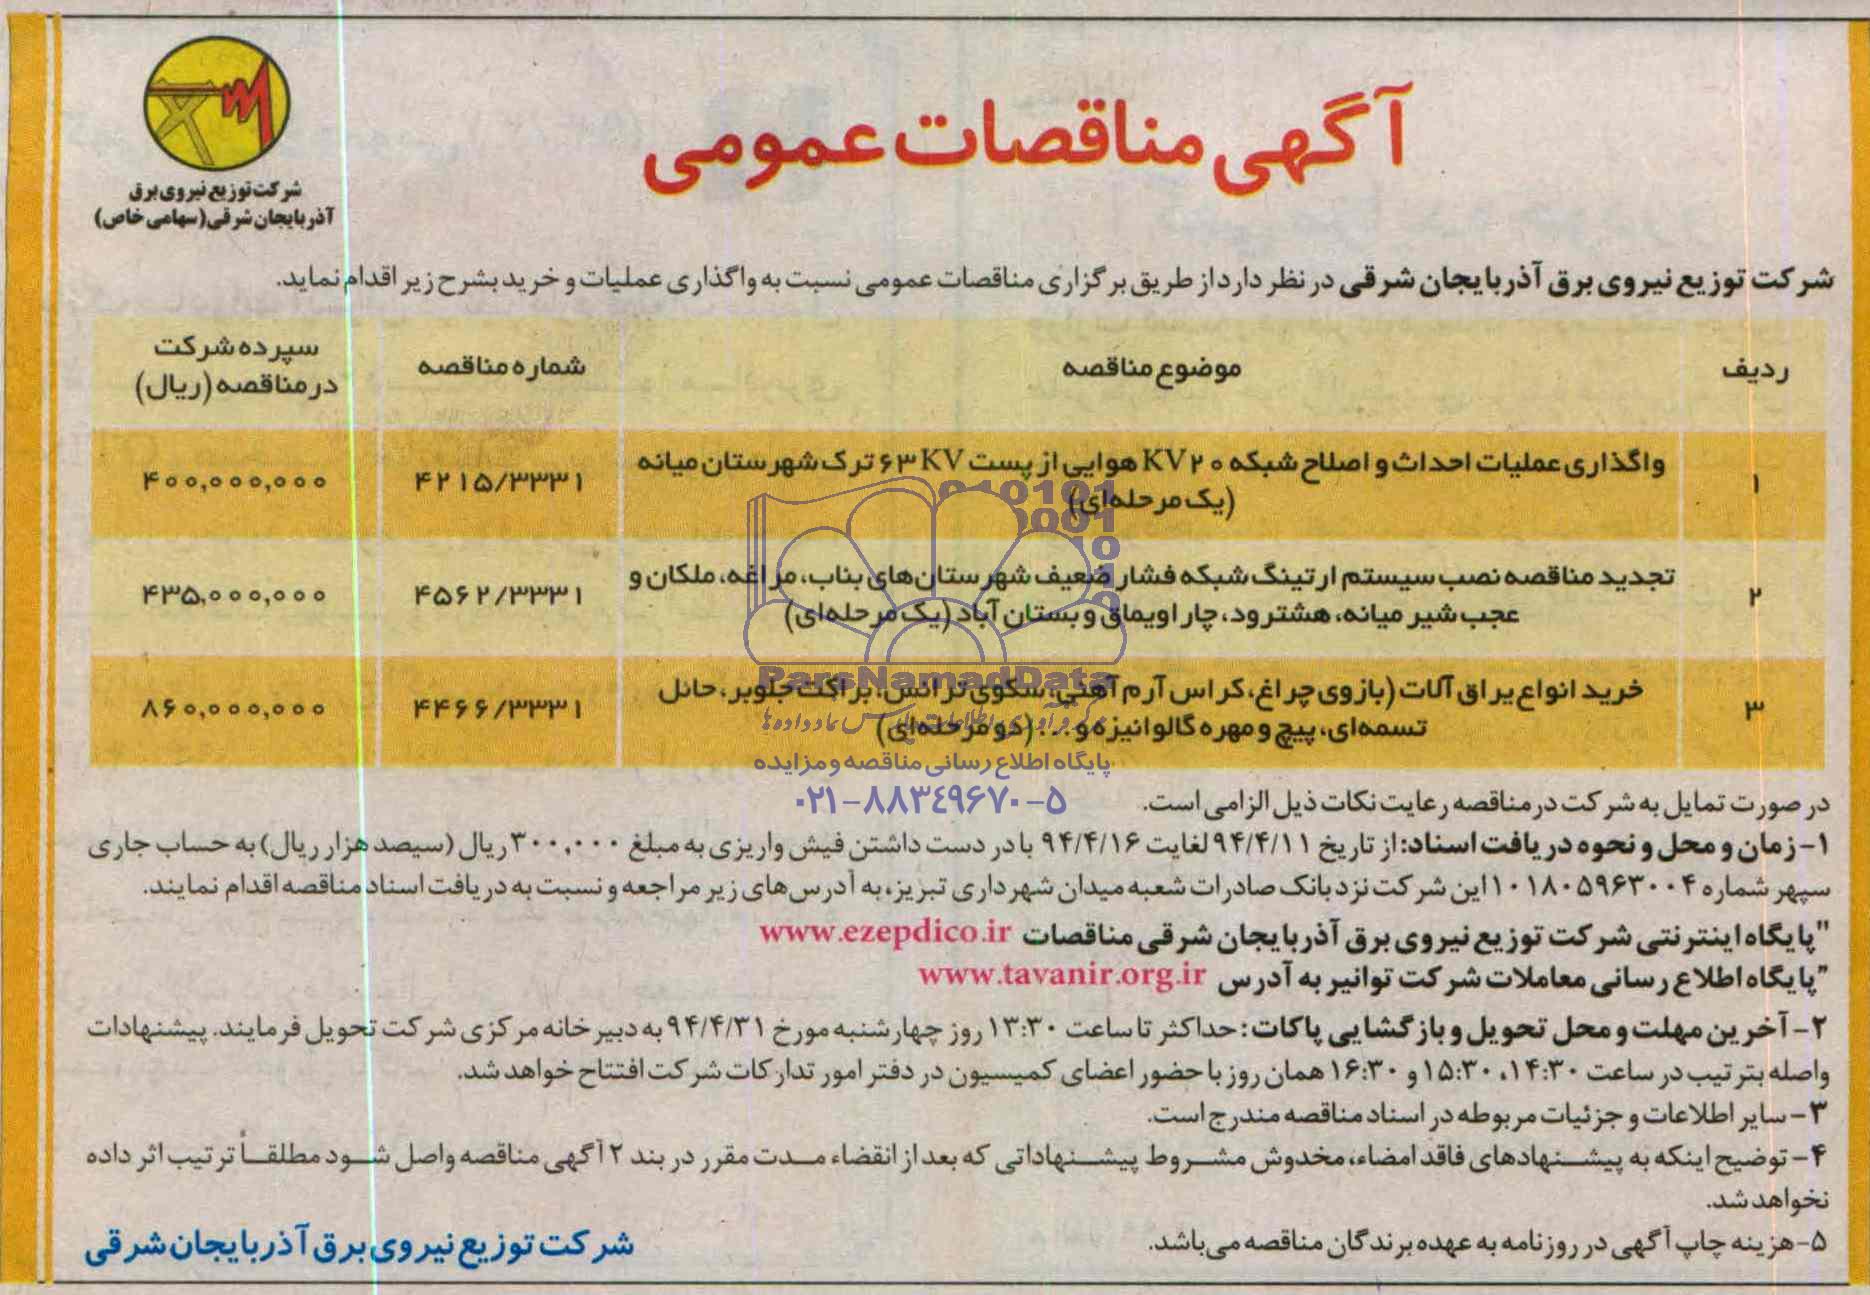 آگهی مناقصات عمومی
شرکت توزیع نیروی برق
آذربایجان شرقی (سهامی خاص)
شرکت توزیع نیروی برق آذربایجان شرقی در نظر دارد از طریق برگزاری مناقصات عمومی نسبت به واگذاری عملیات و خرید بشرح زیر اقدام نماید.
ردیف	موضوع مناقصه	شماره مناقصه	سپرده شرکت در مناقصه (ریال)
۱	واگذاری عملیات احداث و اصلاح شبکه ۲۰ KV هوایی از پست ۶۳ KV ترک شهرستان میانه	۴۲۱۵/۳۳۳۱	۴۰۰,۰۰۰,۰۰۰
(یک مرحله‌ای)
۲	تجدید مناقصه نصب سیستم ارتینگ شبکه فشار ضعیف شهرستان‌های بناب، مراغه، ملکان و	۴۵۶۲/۳۳۳۱	۴۳۵,۰۰۰,۰۰۰
عجب شیر میانه، هشترود، چاراویماق و بستان آباد (یک مرحله‌ای)
۳	خرید انواع یراق آلات (بازوی چراغ، کراس آرم آهنی، سکوی ترانس، براکت جلوبر، حائل	۴۴۶۶/۳۳۳۱	۸۶۰,۰۰۰,۰۰۰
تسمه‌ای، پیچ و مهره گالوانیزه و ... (دو مرحله‌ای)
ParsNamadData
پایگاه اطلاع رسانی مناقصه و مزایده
۰۲۱-۸۸۳۴۹۶۷۰-۵
در صورت تمایل به شرکت در مناقصه رعایت نکات ذیل الزامی است.
۱- زمان و محل و نحوه دریافت اسناد: از تاریخ ۹۴/۴/۱۱ لغایت ۹۴/۴/۱۶ با در دست داشتن فیش واریزی به مبلغ ۳۰۰,۰۰۰ ریال (سیصد هزار ریال) به حساب جاری
سپهر شماره ۱۰۱۸۰۵۹۶۳۰۰۴ این شرکت نزد بانک صادرات شعبه میدان شهرداری تبریز، به آدرس‌های زیر مراجعه و نسبت به دریافت اسناد مناقصه اقدام نمایند.
"پایگاه اینترنتی شرکت توزیع نیروی برق آذربایجان شرقی مناقصات www.ezepdico.ir
"پایگاه اطلاع رسانی معاملات شرکت توانیر به آدرس www.tavanir.org.ir
۲- آخرین مهلت و محل تحویل و بازگشایی پاکات: حداکثر تا ساعت ۱۳:۳۰ روز چهارشنبه مورخ ۹۴/۴/۳۱ به دبیرخانه مرکزی شرکت تحویل فرمایند. پیشنهادات
واصله بترتیب در ساعت ۱۴:۳۰، ۱۵:۳۰ و ۱۶:۳۰ همان روز با حضور اعضای کمیسیون در دفتر امور تدارکات شرکت افتتاح خواهد شد.
۳- سایر اطلاعات و جزئیات مربوطه در اسناد مناقصه مندرج است.
۴- توضیح اینکه به پیشنهادهای فاقد امضاء، مخدوش مشروط پیشنهاداتی که بعد از انقضاء مدت مقرر در بند ۲ آگهی مناقصه واصل شود مطلقاً ترتیب اثر داده
نخواهد شد.
۵- هزینه چاپ آگهی در روزنامه به عهده برندگان مناقصه می‌باشد.
شرکت توزیع نیروی برق آذربایجان شرقی